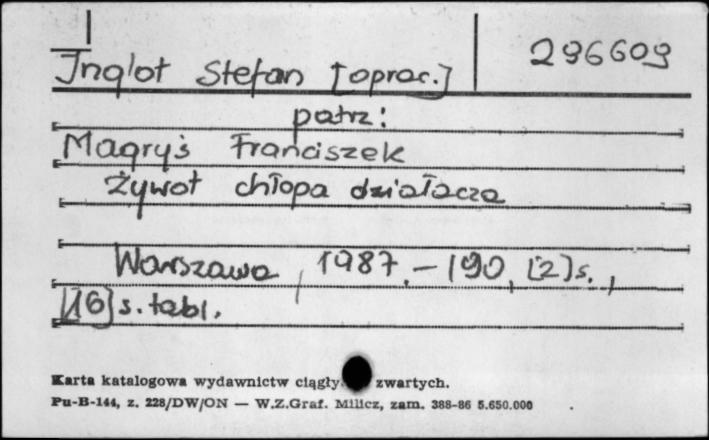 Inglot Stefan [oprac.] 296609
patrz:
Magryś Franciszek
Żywot chłopa działacza
Warszawa, 1987. – 190, [2] s.,
[16] s. tabl.
Karta katalogowa wydawnictw ciągły zwartych.
Pu-B-144, z. 228/DW/ON — W.Z.Graf. Milicz, zam. 388-86 5.650.000